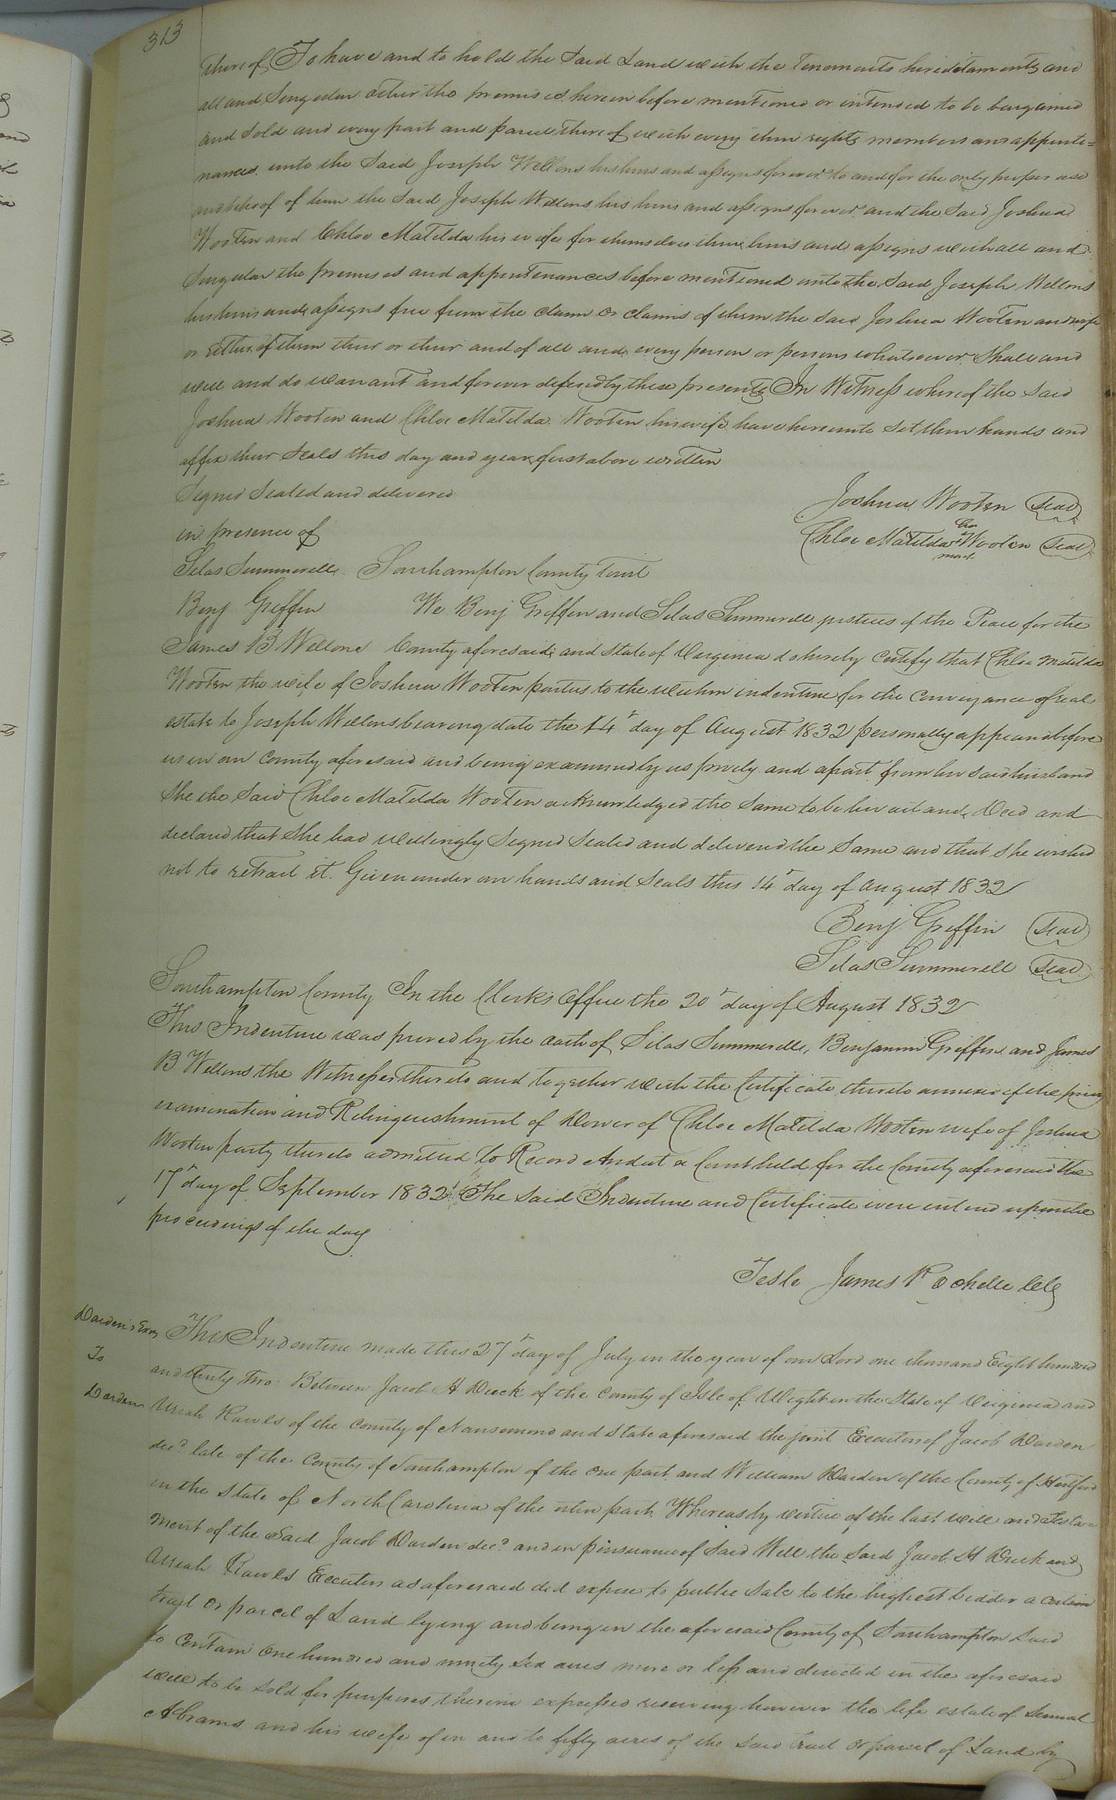 313
thereof, To have and to hold the Said Land with the Tenements hereditaments and
all and Singular other the premises herein before mentioned or intended to be bargained
and Sold and every part and parcel thereof with every their rights members and appurte=
nances unto the Said Joseph Wellons his heirs and assigns forever to and for the only proper use
and behoof of him the Said Joseph Wellons his heirs and assigns forever and the Said Joshua
Wooten and Chloe Matilda his wife for themselves their heirs and assigns with all and
Singular the premises and appurtenances before mentioned unto the Said Joseph Wellons
his heirs and assigns free from the claim or claims of them the Said Joshua Wooten and wife
or Either of them their or their and of all and every person or persons whatsoever Shall and
will and do warrant and forever defend by these presents In Witness whereof the Said
Joshua Wooten and Chloe Matilda Wooten his wife have hereunto Set their hands and
affix their Seals this day and year first above written
Signed Sealed and delivered
in presence of
Joshua Wooten Seal
Chloe Matilda her mark Wooten Seal
Silas Summerell Southampton County Court
Benj Griffin We Benj Griffin and Silas Summerell justices of the Peace for the
James B Wellons County aforesaid and State of Virginia do hereby Certify that Chloe Matilda
Wooten the wife of Joshua Wooten parties to the within indenture for the Conveyance of real
estate to Joseph Wellons bearing date the 14th day of August 1832 personally appeared before
us in our County aforesaid and being examined by us privily and apart from her said husband
She the Said Chloe Matilda Wooten acknowledged the Same to be her act and Deed and
declared that She had willingly Signed Sealed and delivered the Same and that She wished
not to retract it. Given under our hands and Seals this 14th day of August 1832
Benj Griffin Seal
Silas Summerell Seal
Southampton County In the Clerk's Office the 20th day of August 1832
This Indenture was proved by the oath of Silas Summerell, Benjamin Griffin and James
B Wellons the Witnesses thereto and together with the Certificate thereto annexed of the privy
examination and Relinquishment of Dower of Chloe Matilda Wooten wife of Joshua
Wooten party thereto admitted to Record And at a Court held for the County aforesaid the
17th day of September 1832 The Said Indenture and Certificate were entered upon the
proceedings of the day
Teste James Rochelle Clk
Darden's Exors
To
Darden
This Indenture made this 27th day of July in the year of our Lord one thousand Eight hundred
and thirty two Between Jacob H Duck of the County of Isle of Wight in the State of Virginia and
Uriah Rawls of the County of Nansemond and State aforesaid the joint Executors of Jacob Darden
decd late of the County of Southampton of the one part and William Darden of the County of Hertford
in the State of North Carolina of the other part Whereas by virtue of the last will and Testa=
ment of the Said Jacob Darden decd and in pursuance of Said Will the Said Jacob H Duck and
Uriah Rawls Executors as aforesaid did expose to public Sale to the highest bidder a certain
tract or parcel of Land lying and being in the aforesaid County of Southampton Said
to contain one hundred and ninety Six acres more or less and directed in the aforesaid
will to be Sold for purposes therein expressed reserving however the life estate of
Abrams and his wife of in and to fifty acres of the Said tract or parcel of Land by